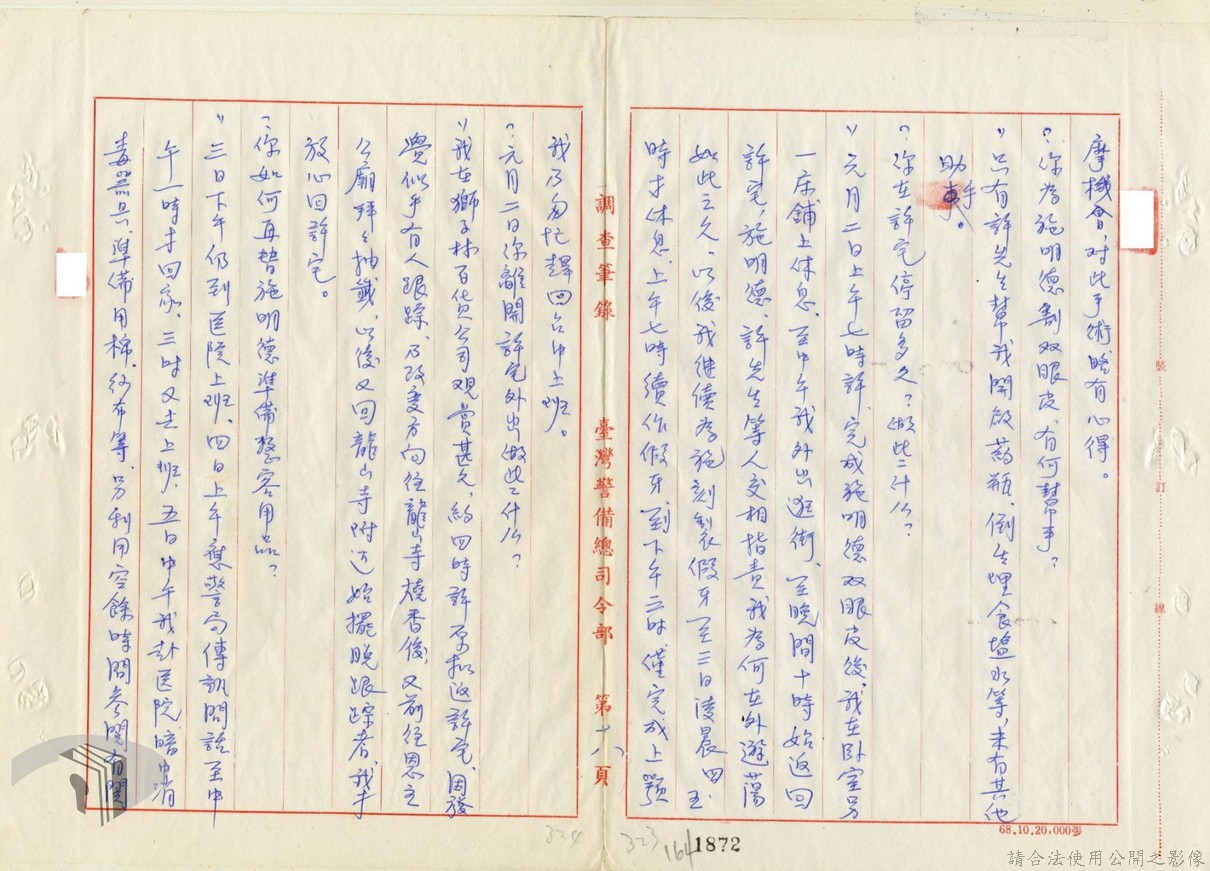 摩機會，對此手術略有心得。
？你為施明德割双眼皮、有何幫手？
〃只有許先生幫我開啟葯瓶，倒生理食塩水等，未有其他
助手。
？你在許宅停留多久？做些什么？
〃元月二日上午七時許，完成施明德双眼皮後，我在卧室另
一床鋪上休息，至中午我外出逛街，至晚間十時始返回
許宅，施明德、許先生等人交相指責我為何在外遊蕩
如此之久，以後我继續為施刻製假牙至三日凌晨四、五
時才休息上午七時續作假牙，到下午二時，僅完成上顎
調查筆錄 臺灣警備總司令部 第十八頁
我乃匆忙趕回台中上班。
？元月二日你離開許宅外出做些什么？
〃我在獅子林百貨公司观賞甚久，約四時許原拟返許宅，因發
覺似乎有人跟踪，乃改変方向往龍山寺燒香後，又前往恩主
公廟拜拜抽籤，以後又回龍山寺附近始擺脫跟踪者，我才
放心回許宅。
？你如何再替施明德準備整容用品？
〃三日下午仍到医院上班，四日上午應警局傳訊問話至中
午一時才回家，三時又去上班，五日中午我赴医院暗中消
毒器具，準備用棉、紗布等，另利用空餘時間參閱有関
68.10.20,000張
裝
訂
線
324
323
164
1872
請合法使用公開之影像